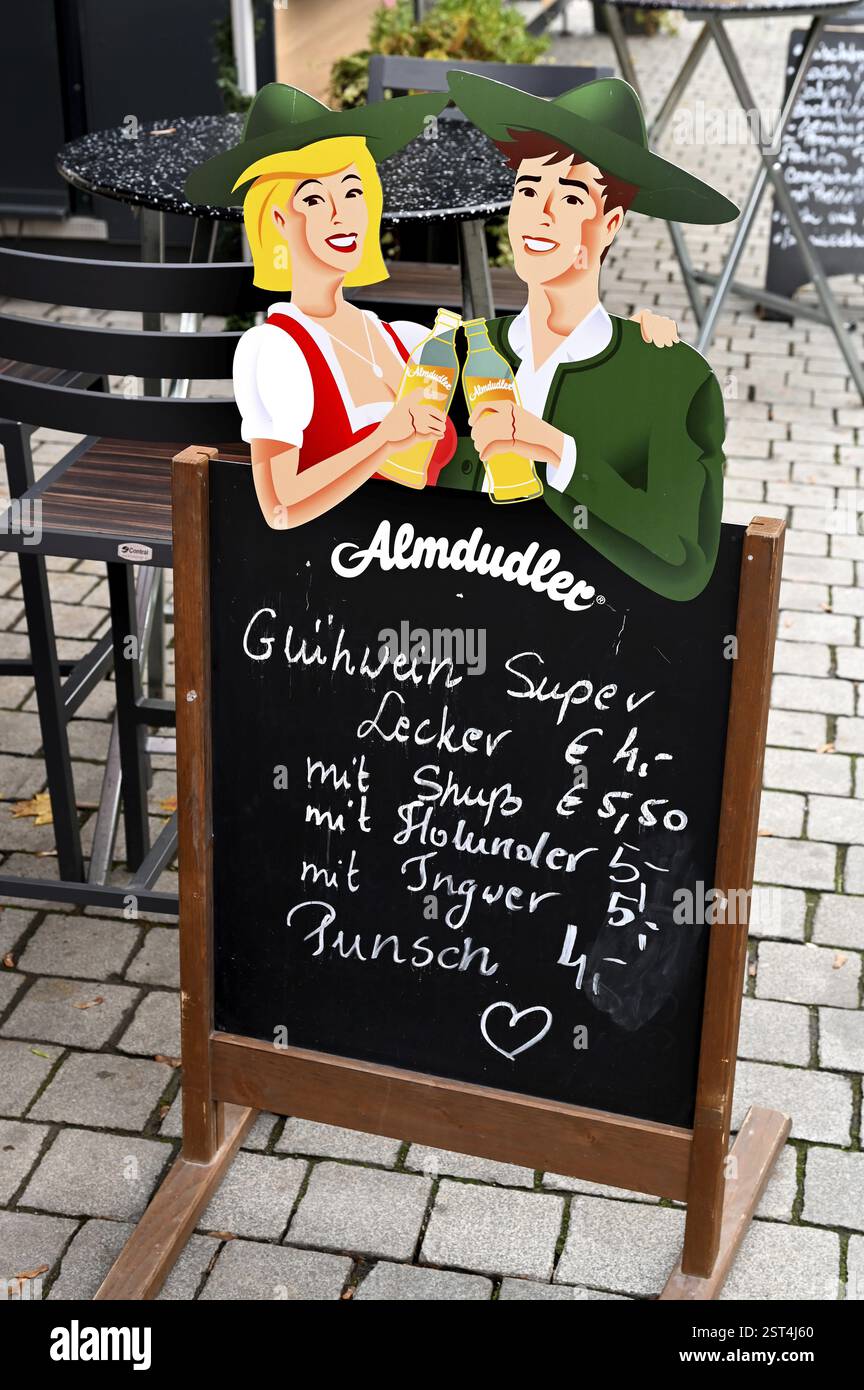 Almdudler
Almdudler
Almdudler®
Glühwein Super
Lecker € 4,-
mit Shuß € 5,50
mit Holunder 5,-
mit Ingwer 5,-
Punsch 4,-
Contral
alamy
Image ID: 2ST4J60
www.alamy.com